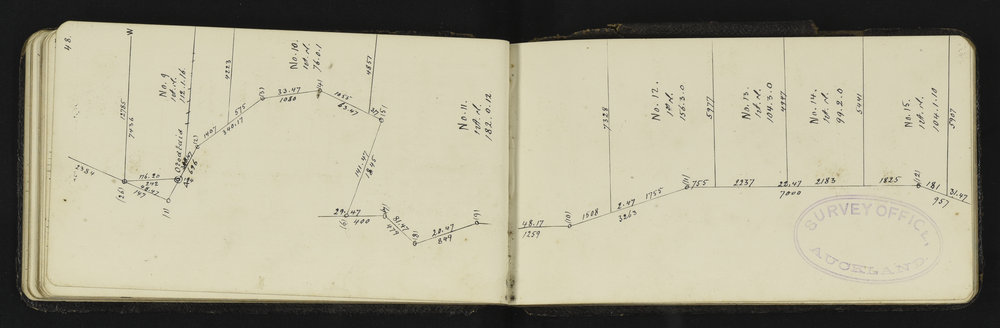 48.
W
12785
7436
No. 9
1st. d.
112.1.16
4223
No. 10.
1st. d.
76.0.1
4857
No. 11.
1st. d.
182.0.12
2384
116.20
242
48.47
147
(26)
(1)
696
(2)
1407
340.17
575
(3)
33.47
1080
(4)
1055
63.47
(5)
141.47
1845
(6)
29.47
400
(7)
81.47
479
(8)
20.47
849
(9)
48.17
1259
(10)
1508
2.47
3263
1755
7328
No. 12.
1st. d.
156.3.0
(11)
755
5977
2237
No. 13.
1st. d.
104.3.0
4947
22.47
7000
2183
No. 14.
1st. d.
99.2.0
5441
1825
No. 15.
1st. d.
104.1.10
(12)
181
5907
31.47
957
SURVEY OFFICE,
AUCKLAND.